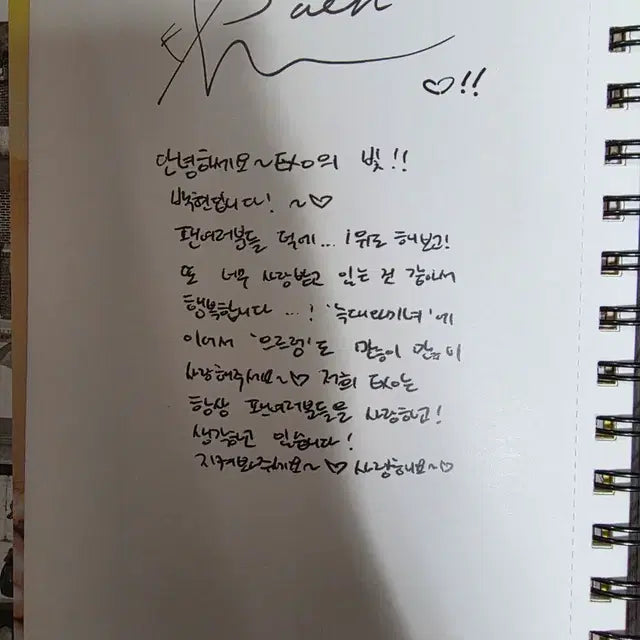 ♡!!
안녕하세요~ EXO의 빛!!
백현입니다! ~♡
팬여러분들 덕에... 1위도 해보고!
또 너무 사랑받고 있는 것 같아서
행복합니다...! '늑대와미녀'에
이어서 '으르렁'도 많이 많이
사랑해주세요~♡ 저희 EXO는
항상 팬여러분들을 사랑하고!
생각하고 있습니다!
지켜봐주세요~♡ 사랑해요~♡